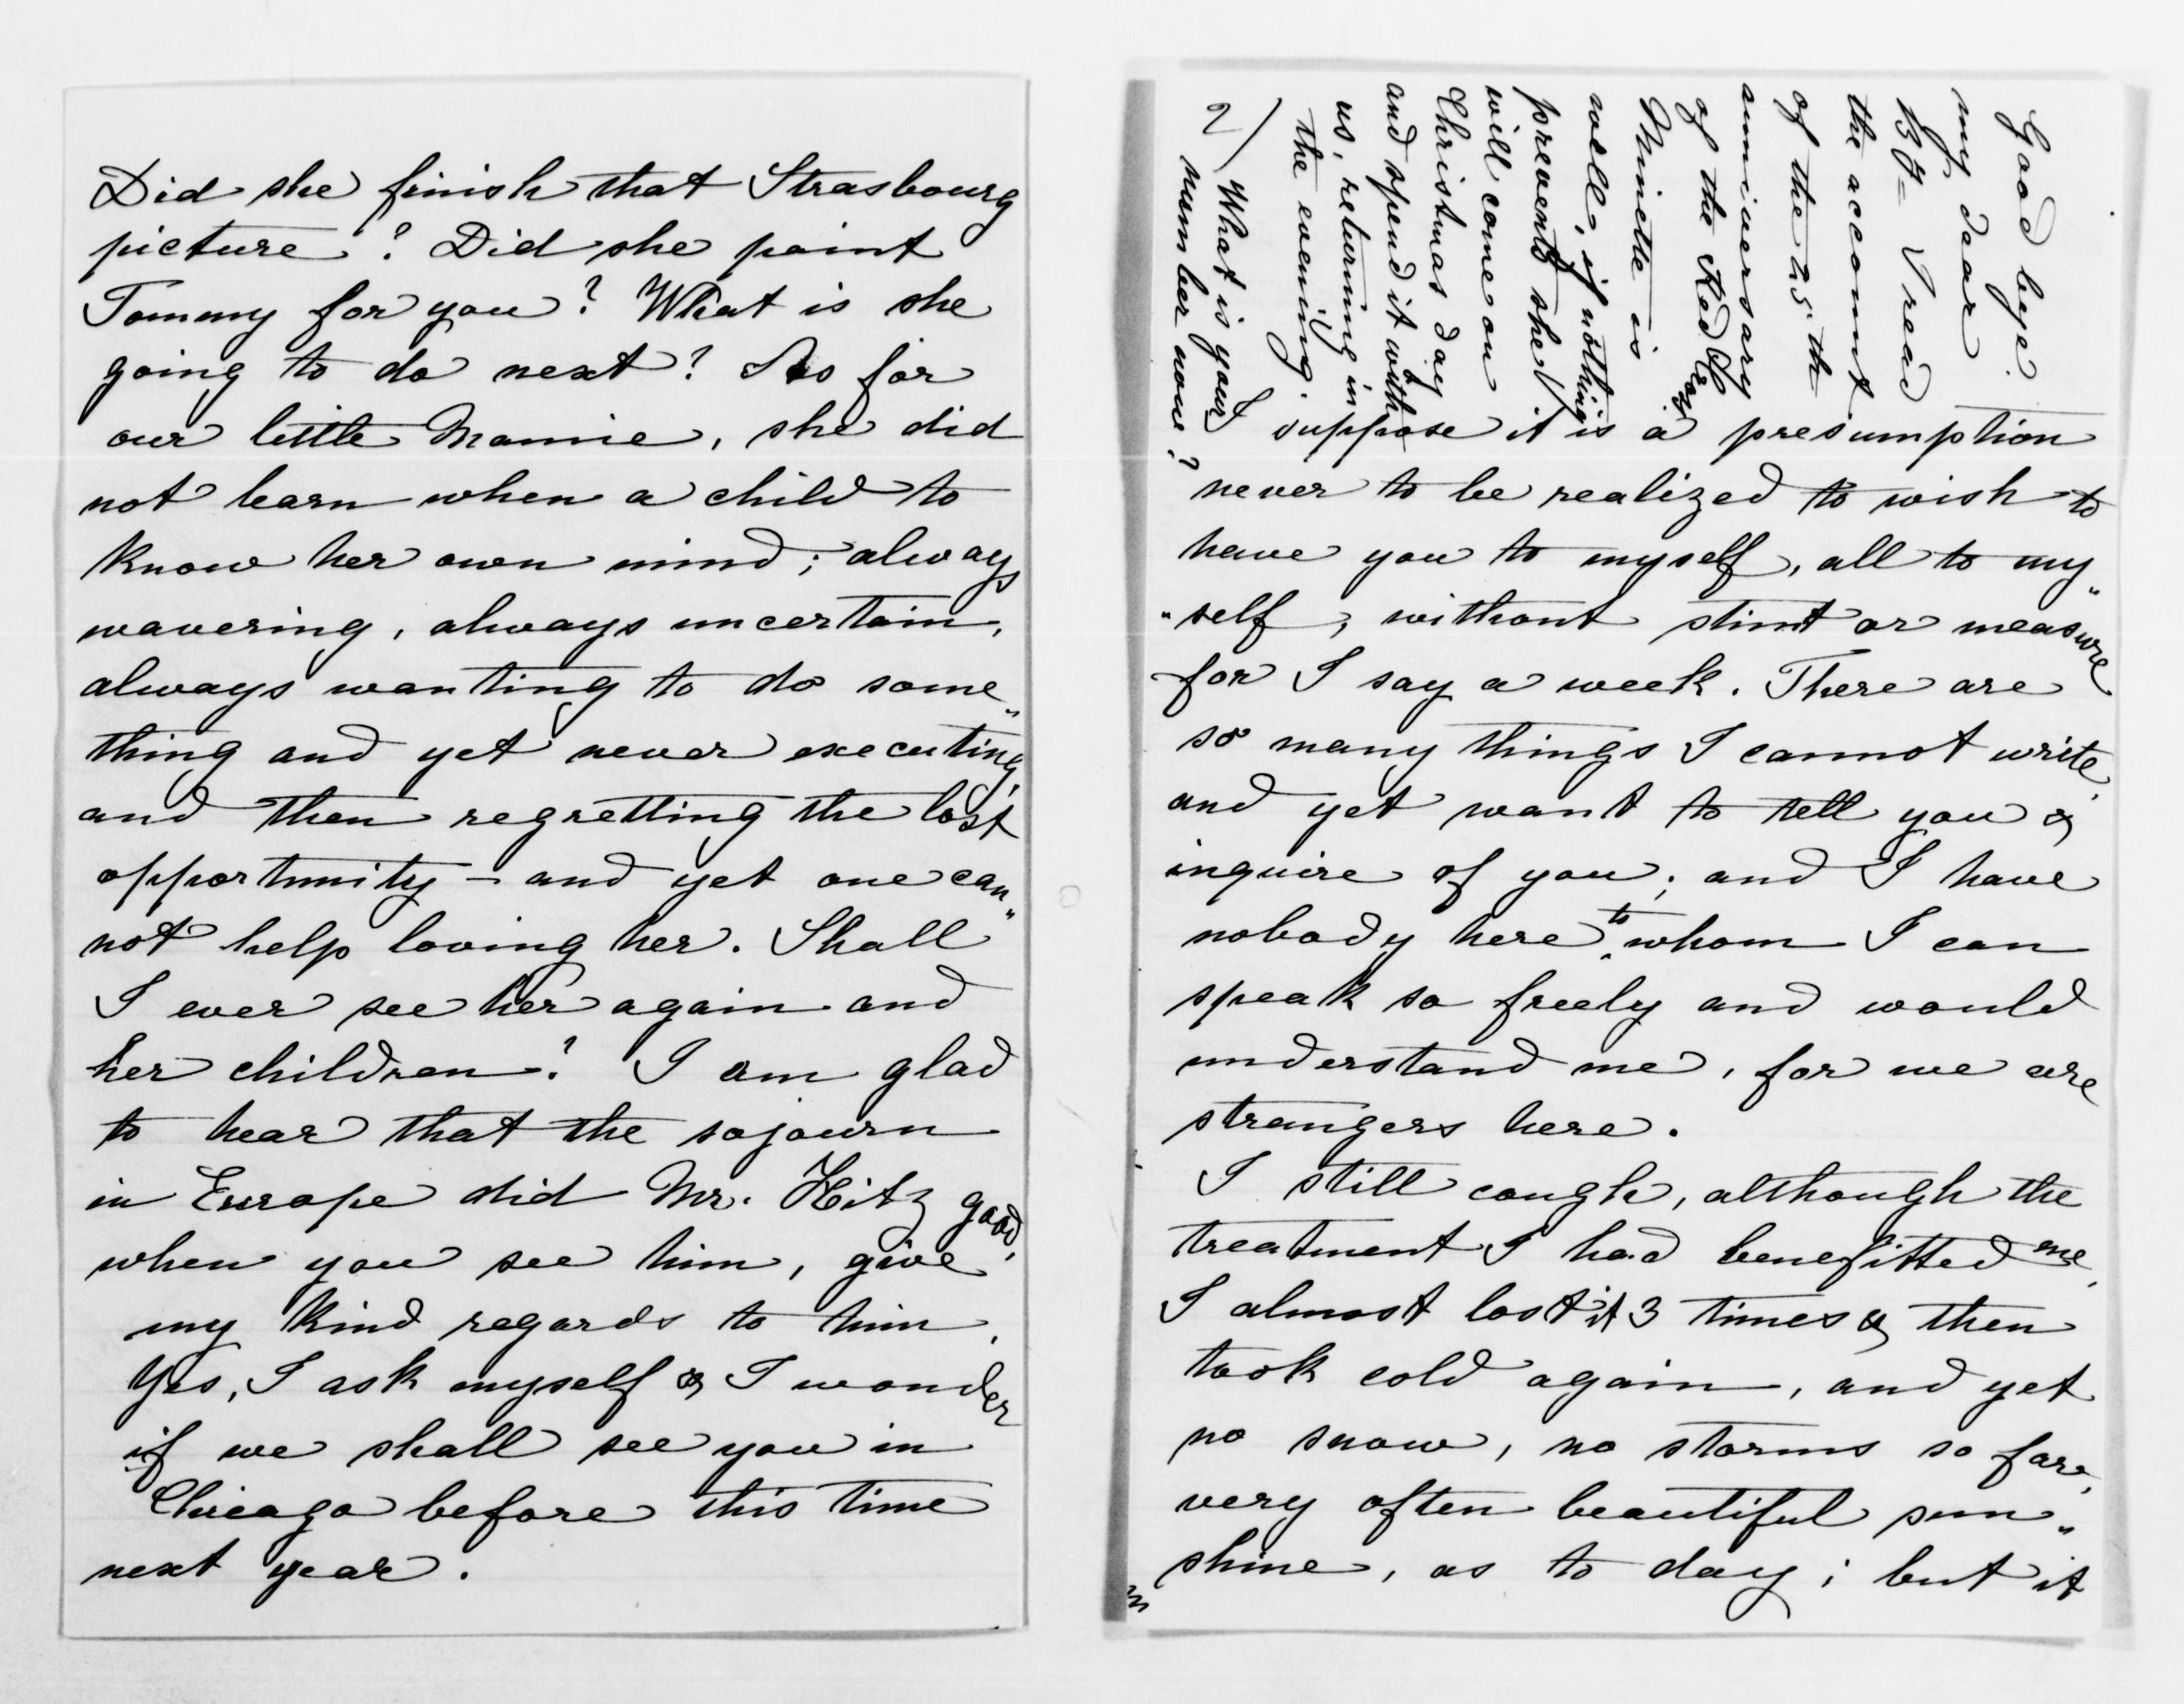 Did she finish that Strasbourg
picture? Did she paint
Tommy for you? What is she
going to do next? As for
our little Mamie, she did
not learn when a child to
know her own mind; always
wavering, always uncertain,
always wanting to do some„
thing and yet never executing,
and then regretting the lost
opportunity – and yet one can„
not help loving her. Shall
I ever see her again and
her children? I am glad
to hear that the sojourn
in Europe did Mr. Hitz good,
when you see him, give
my kind regards to him.
Yes, I ask myself & I wonder
if we shall see you in
Chicago before this time
next year.
Good bye.
my dear
I read
the account
of the 25th
anniversary
of the Red Cross
Minette is
well, if nothing
prevents she
will come on
Christmas day
and spend it with
us, returning in
the evening.
2/ What is your
number now?
I suppose it is a presumption
never to be realized to wish to
have you to myself, all to my„
„self, without stint or measure
for I say a week. There are
so many things I cannot write,
and yet want to tell you &
inquire of you; and I have
nobody here to whom I can
speak so freely and would
understand me, for we are
strangers here.
I still cough, although the
treatment I had benefitted me,
I almost lost it 3 times & then
took cold again, and yet
no snow, no storms so far,
very often beautiful sun„
shine, as to day; but it